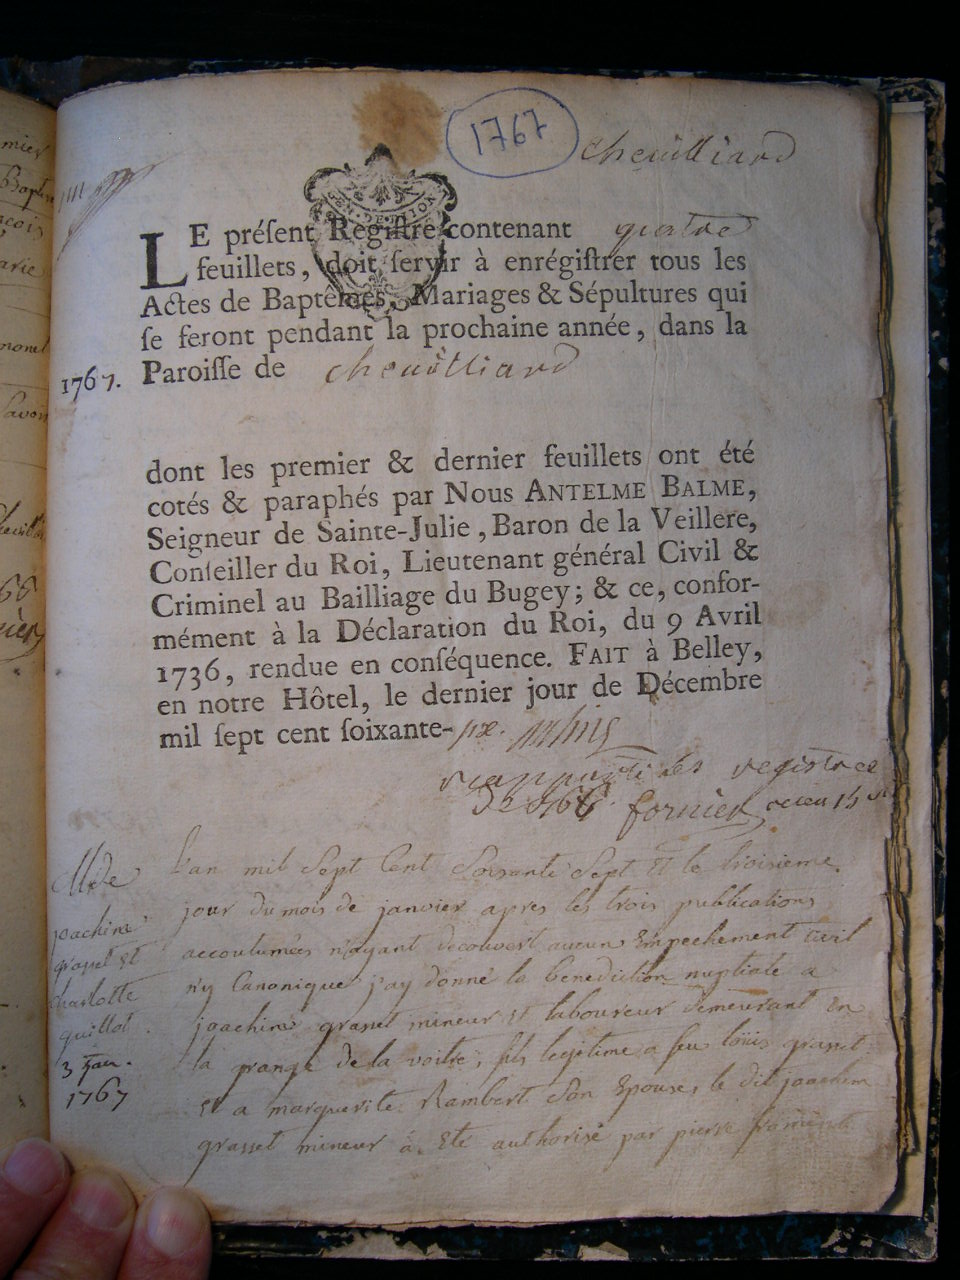 1767
cheuilliard
GEN. DE DIJON
LE préſent Regiſtre contenant quatre
feuillets, doit ſervir à enrégiſtrer tous les
Actes de Baptêmes, Mariages & Sépultures qui
ſe feront pendant la prochaine année, dans la
1767. Paroiſſe de cheuilliard
dont les premier & dernier feuillets ont été
cotés & paraphés par Nous ANTELME BALME,
Seigneur de Sainte-Julie, Baron de la Veillere,
Conſeiller du Roi, Lieutenant général Civil &
Criminel au Bailliage du Bugey; & ce, confor-
mément à la Déclaration du Roi, du 9 Avril
1736, rendue en conſéquence. FAIT à Belley,
en notre Hôtel, le dernier jour de Décembre
mil ſept cent ſoixante-six.
les registres
1766 fornier receu 15 s
M. de
joachim
grasset et
charlotte
guillot.
3 janv.
1767
L'an mil Sept Cent Soixante Sept et le troisieme
jour du mois de janvier apres les trois publications
accoutumées n'ayant decouvert aucun Empechement civil
n'y Canonique j'ay donné la benediction nuptiale a
joachim grasset mineur et laboureur demeurant en
la grange de la voitre, fils legitime a feu loüis grasset
et a marguerite Rambert son Epouse, le dit joachim
grasset mineur a Eté authorisé par pierre